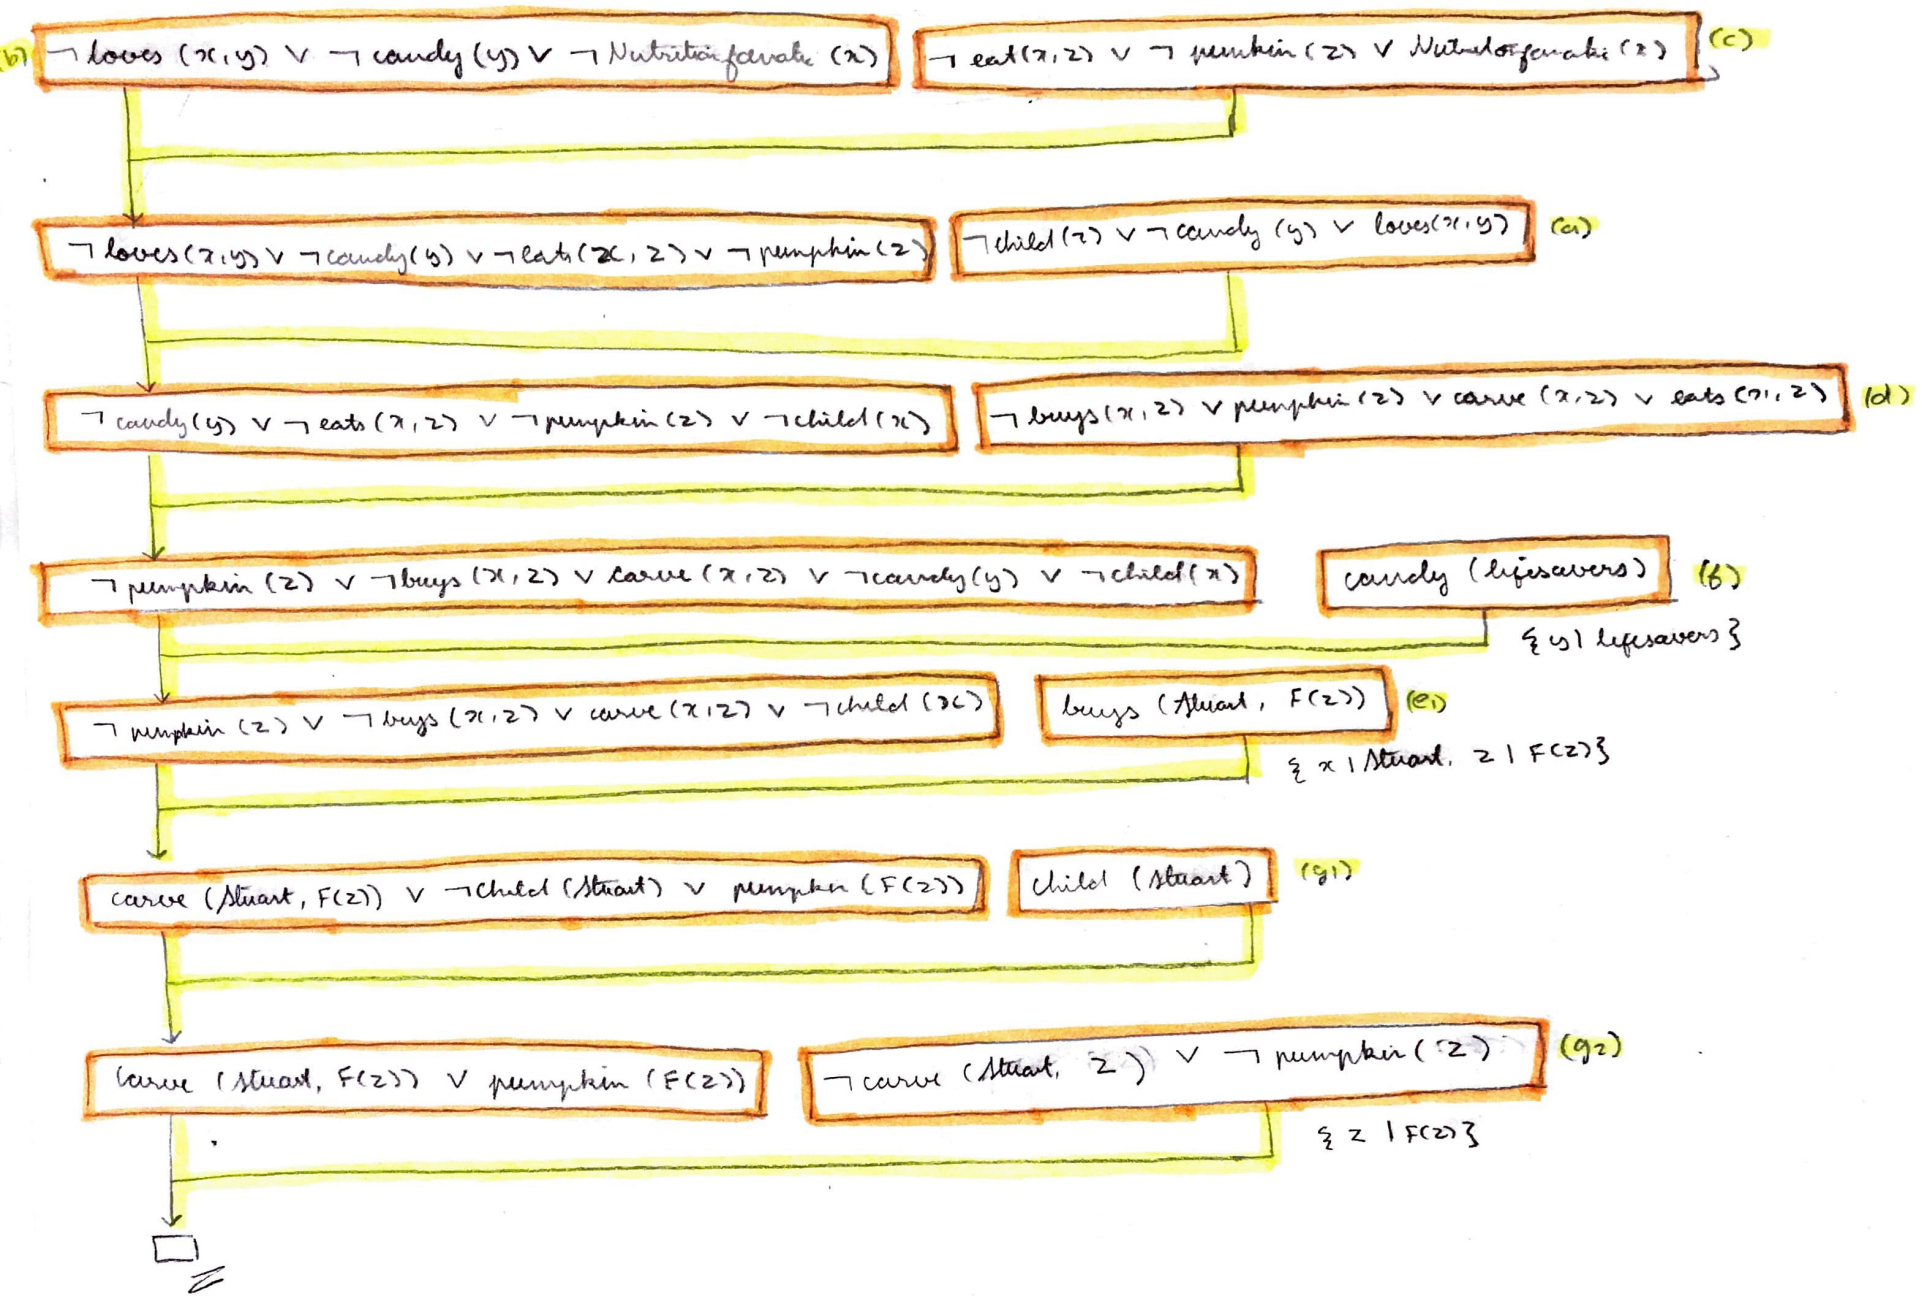 (b) ¬ loves (x,y) ∨ ¬ candy (y) ∨ ¬ Nutrition fanatic (x) ¬ eat(x,z) ∨ ¬ pumkin (z) ∨ (x) (c)
¬ loves(x,y) ∨ ¬ candy(y) ∨ ¬ eats (x, z) ∨ ¬ pumpkin (z) ¬ child (x) ∨ ¬ candy (y) ∨ loves(x,y) (a)
¬ candy(y) ∨ ¬ eats (x,z) ∨ ¬ pumpkin (z) ∨ ¬ child (x) ¬ buys(x,z) ∨ pumpkin (z) ∨ carve (x,z) ∨ eats (x,z) (d)
¬ pumpkin (z) ∨ ¬ buys (x,z) ∨ carve (x,z) ∨ ¬ candy(y) ∨ ¬ child(x) candy (lifesavers) (f)
{ y | lifesavers }
¬ pumpkin (z) ∨ ¬ buys (x,z) ∨ carve (x,z) ∨ ¬ child (x) buys (Stuart, F(z)) (e1)
{ x | Stuart, z | F(z) }
carve (Stuart, F(z)) ∨ ¬ child (Stuart) ∨ pumpkin (F(z)) child (Stuart) (g1)
carve (Stuart, F(z)) ∨ pumpkin (F(z)) ¬ carve (Stuart, z) ∨ ¬ pumpkin (z) (g2)
{ z | F(z) }